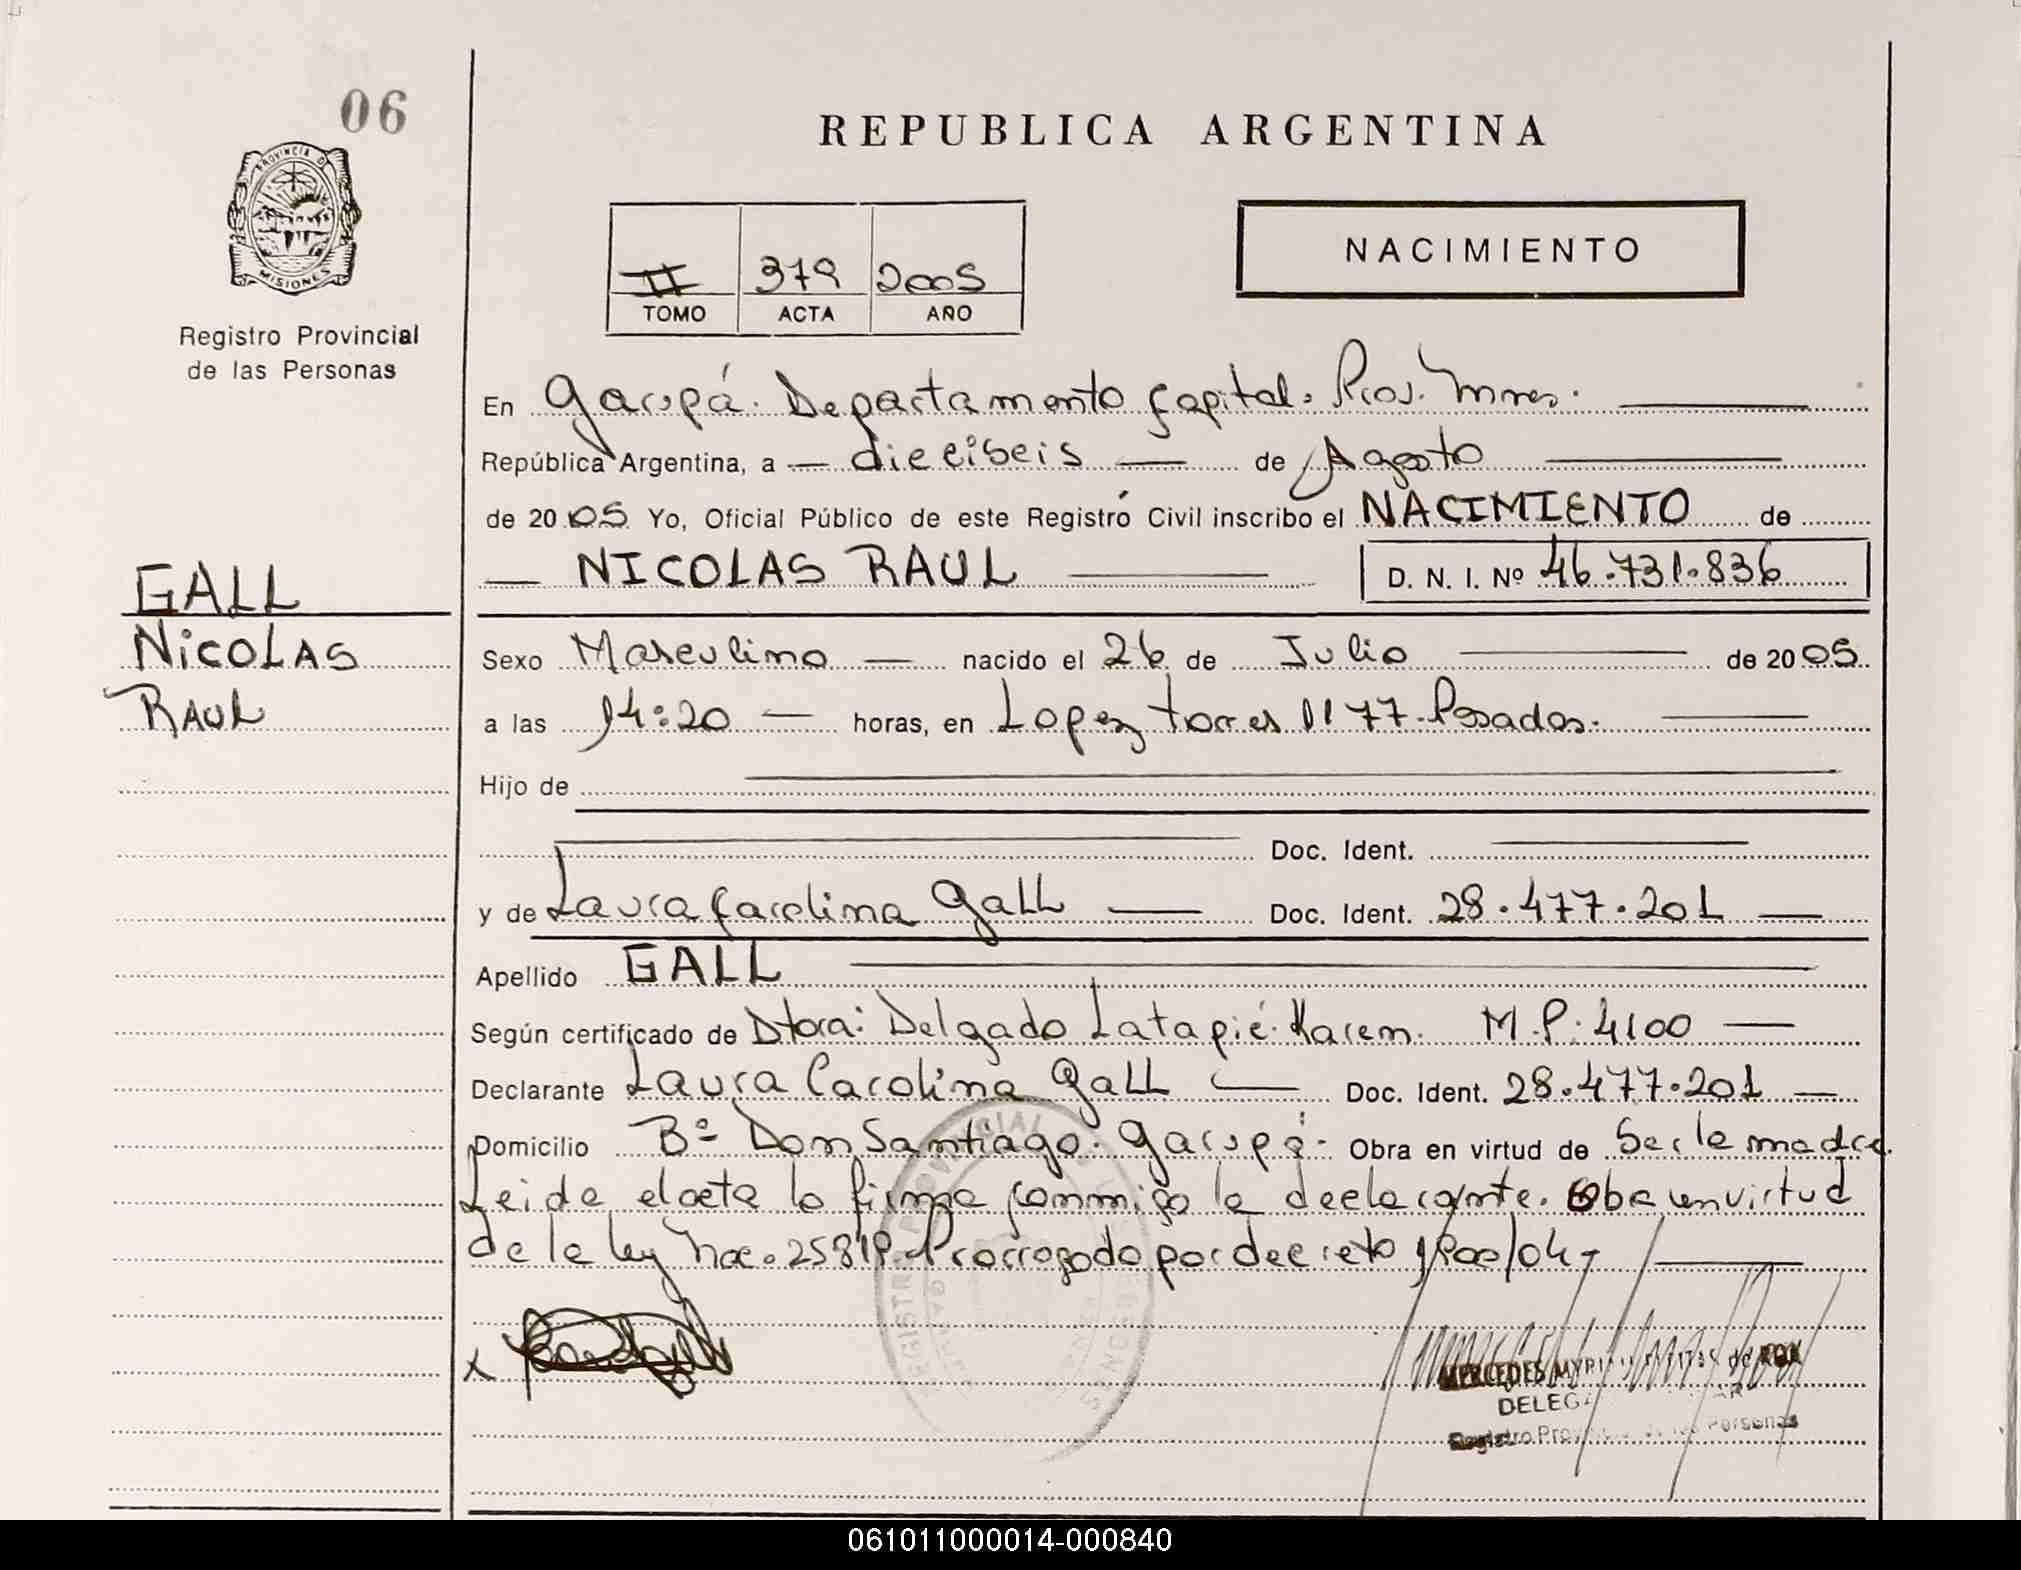 06
REPUBLICA ARGENTINA
PROVINCIA DE
MISIONES
Registro Provincial
de las Personas
II 379 2005
TOMO ACTA AÑO
NACIMIENTO
En Garupá. Departamento Capital. Pcia. Mnes.
República Argentina, a — dieciseis — de Agosto
de 2005 Yo, Oficial Público de este Registro Civil inscribo el NACIMIENTO de
— NICOLAS RAUL — D. N. I. Nº 46.731.836
GALL
NICOLAS
RAUL
Sexo Masculino — nacido el 26 de Julio — de 2005
a las 14:20 — horas, en Lopez Torres 1177. Posadas.
Hijo de
Doc. Ident.
y de Laura Carolina Gall — Doc. Ident. 28.477.201 —
Apellido GALL
Según certificado de Dtora: Delgado Latapié Karem. M.P: 4100 —
Declarante Laura Carolina Gall — Doc. Ident. 28.477.201 —
Domicilio Bº Don Santiago. Garupá. Obra en virtud de Ser la madre.
Leida el acta la firma conmigo la declarante. Obra en virtud
de la ley Nro. 25819. Prorrogado por decreto
x
REGISTRO PROVINCIAL
MERCEDES
de
DELEG
Registro Personas
061011000014-000840